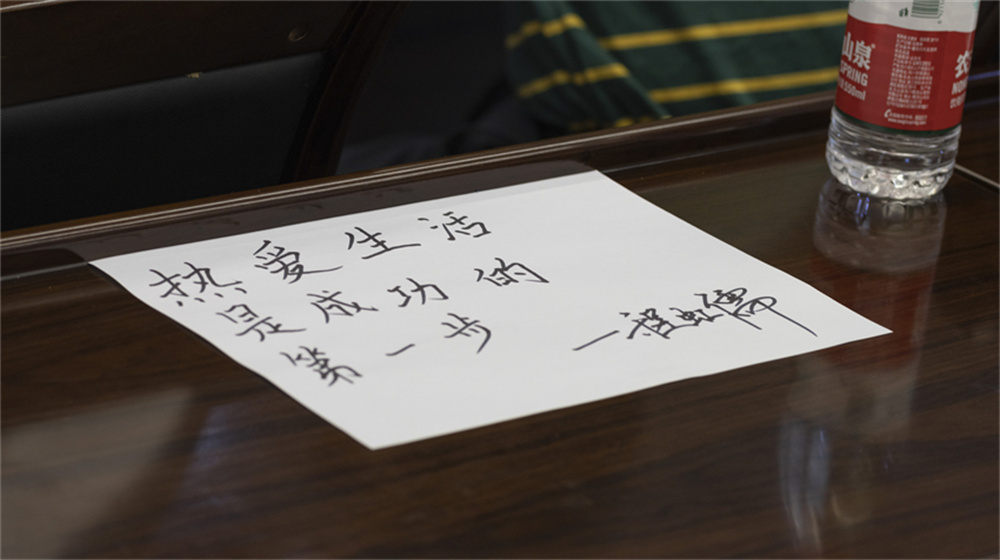 热爱生活
是成功的
第一步
一程虹儒
山泉
SPRING
550ml
农
NON